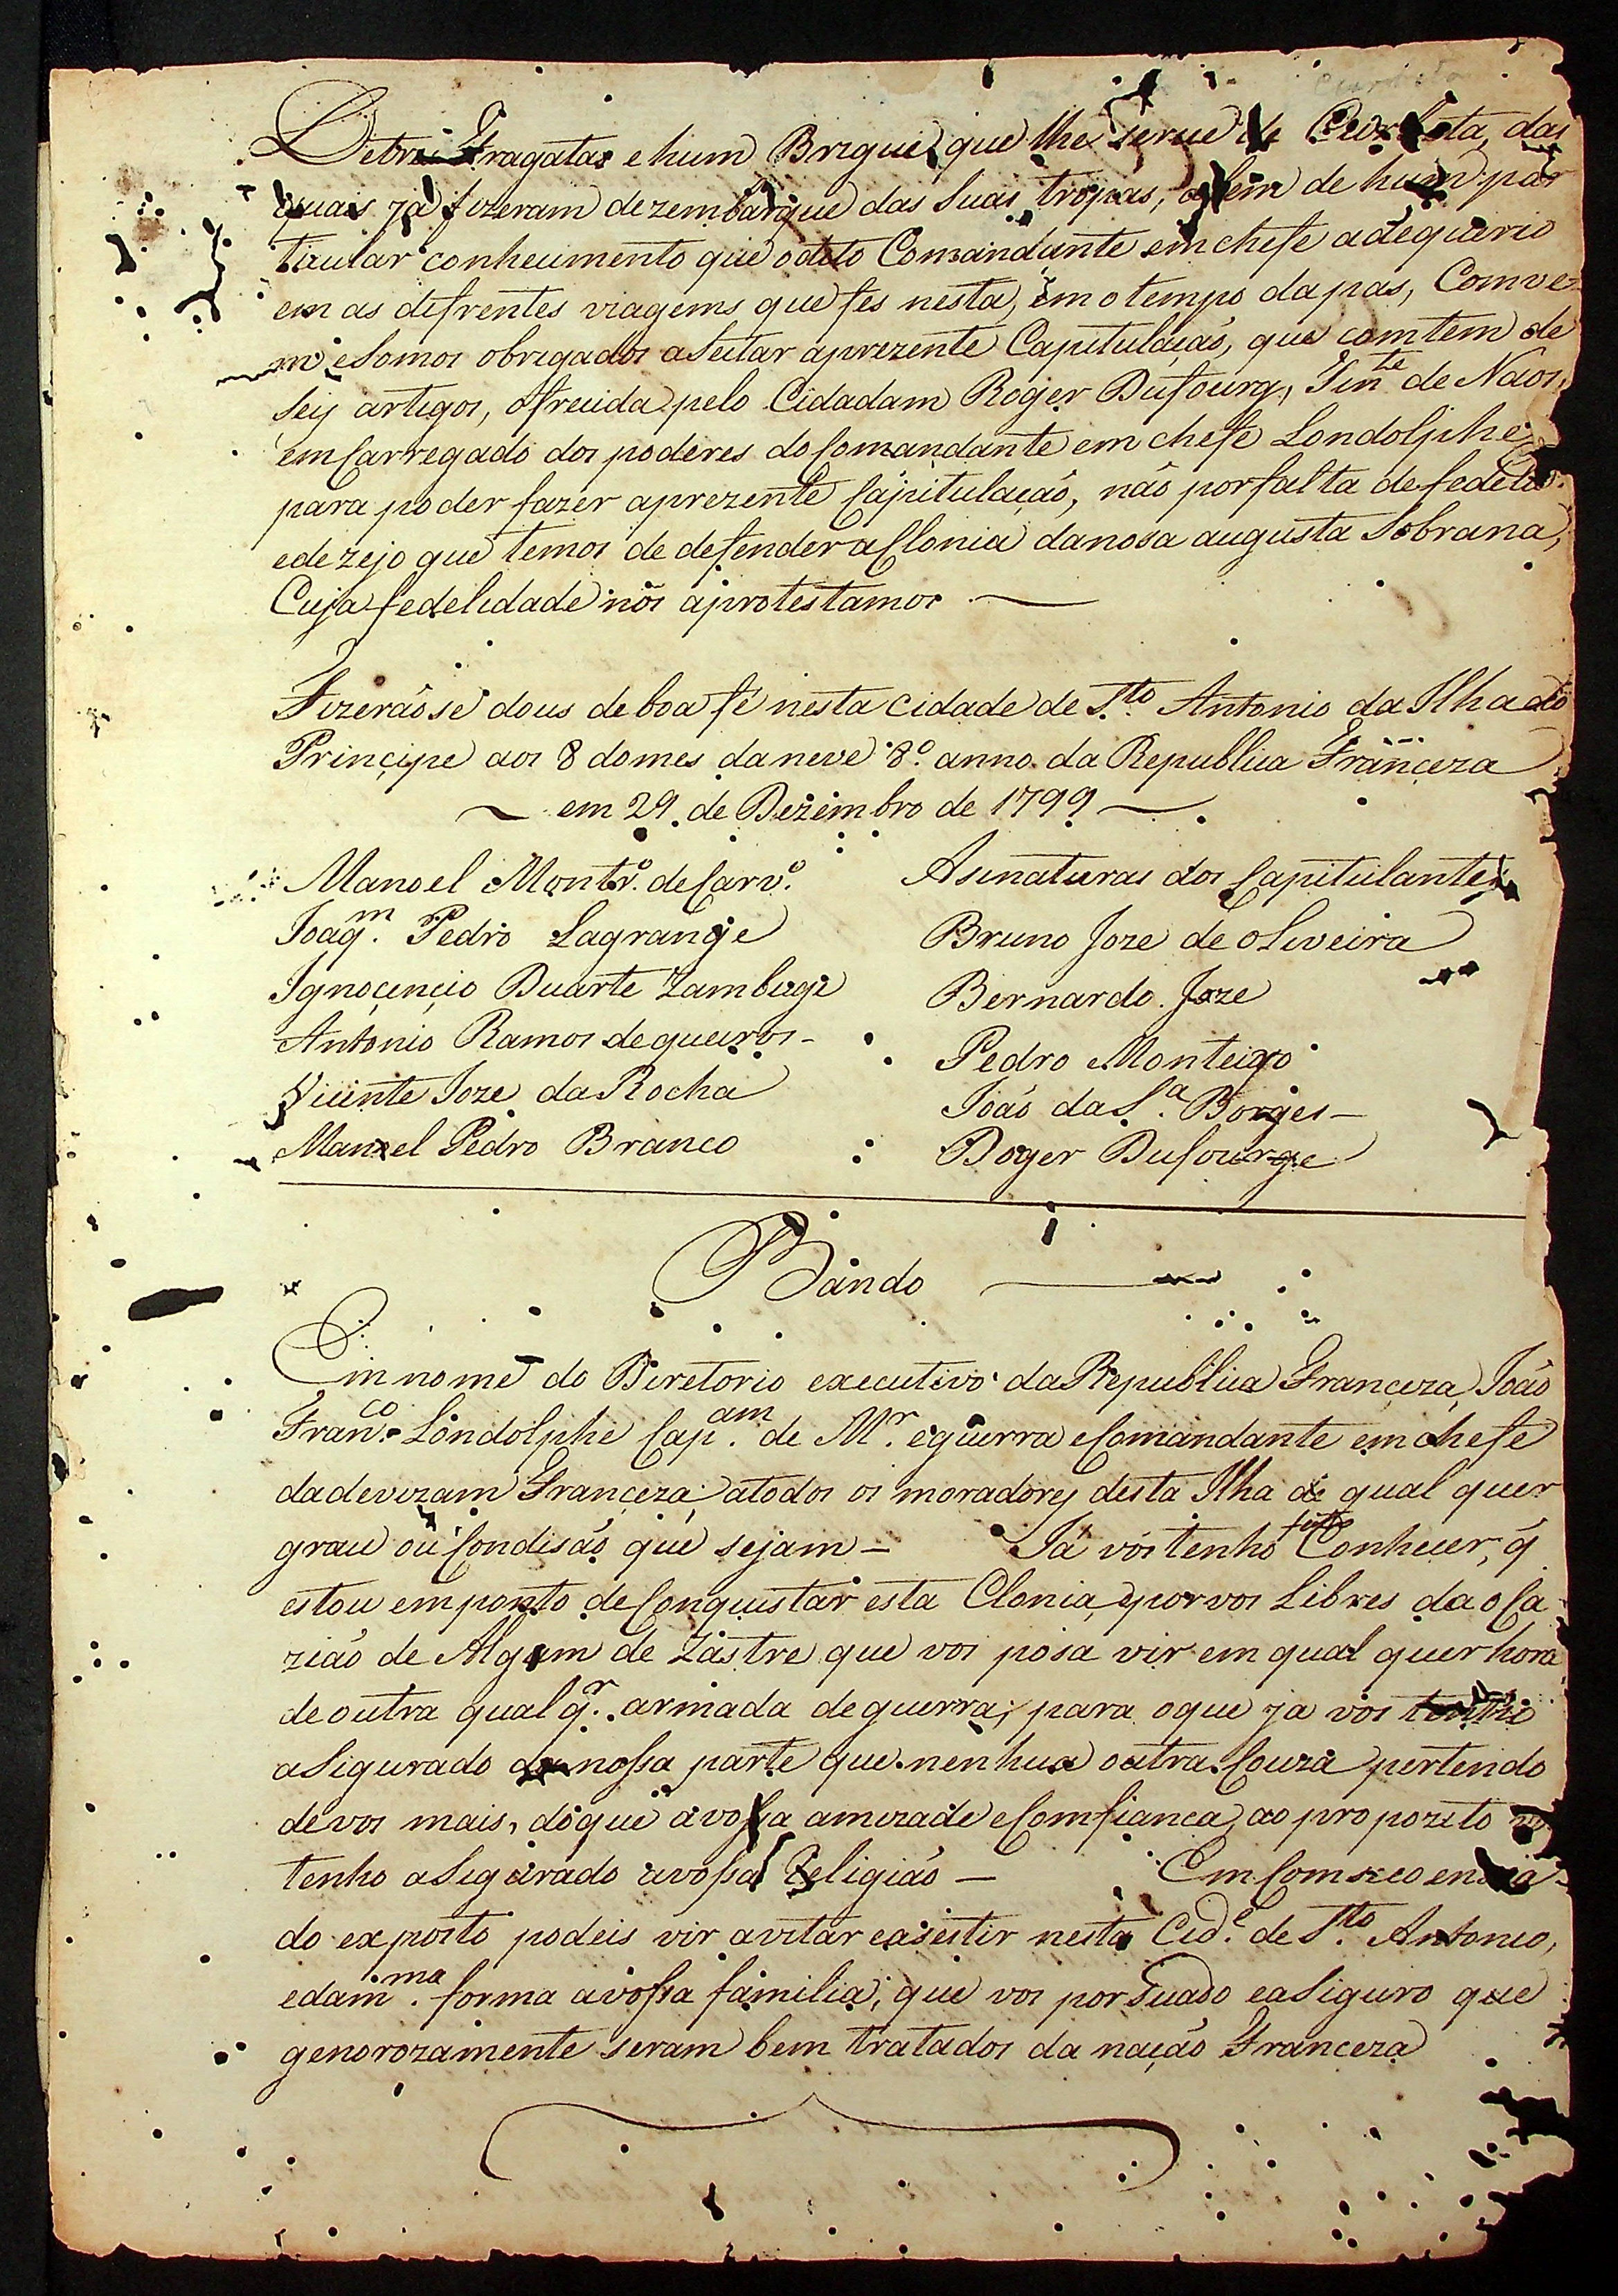 De tres Fragatas e hum Brigue, que lhe serue de Corbeta, das
quais ja fizeram dezembarque das suas tropas, alem de hum par
ticular conhecimento que o dito Comandante em chefe adequirio
em as difrentes viagems que fes nesta, em o tempo da pas, Comve
m e somos obrigados aseitar aprezente Capitulação, que comtem de
seis artigos, ofrecida pelo Cidadam Roger Dufourg, Tinte de Naos,
emCarregado dos poderes do Comandante em chefe Londolphe
para poder fazer aprezente Capitulação, não por falta de fedeli
e dezejo que temos de defender a Clonia da nosa augusta Sobrana,
Cuja fedelidade nós aprotestamos
Fizerãose dous de boa fé nesta cidade de Sto Antonio da Ilha do
Principe aos 8 do mes da neve 8º anno da Republica Franceza
em 29 de Dezembro de 1799
Manoel Montro de Carvo. Asinaturas dos Capitulantes
Joaqm. Pedro Lagrange Bruno Joze de oLiveira
Ignocencio Duarte Zambugi Bernardo Joze
Antonio Ramos de queiros Pedro Monteiro
Vicente Joze da Rocha João da Sa. Borges
Manoel Pedro Branco Doger Dufourge
Bando
Em nome do Diretorio executivo da Republica Franceza, João
Franco. Londolphe Capam. de Mr. e guerra e Comandante em chefe
da devizam Franceza atodos os moradores desta Ilha de qual quer
grau ou Condisão que sejam – Já vós tenho feito Conhecer, q̃
estou em ponto de Conquistar esta Clonia, e por vos Libres da oCa
zião de Algum dezastre que vos posa vir em qual quer hora
de outra qual qr. armada de guerra, para o que ja vos tenho
aSigurado da nossa parte que nenhua outra Couza pertendo
de vos mais, do que a vossa amizade e Comfianca, ao propozito vos
tenho aSigurado a vossa Religião – Em Comsecoencia
do exposto podeis vir avitar e asestir nesta Cide. de Sto. Antonio,
e da mma. forma a vossa familia, que vos porsuado e aSiguro que
genorozamente seram bem tratados da nação Franceza